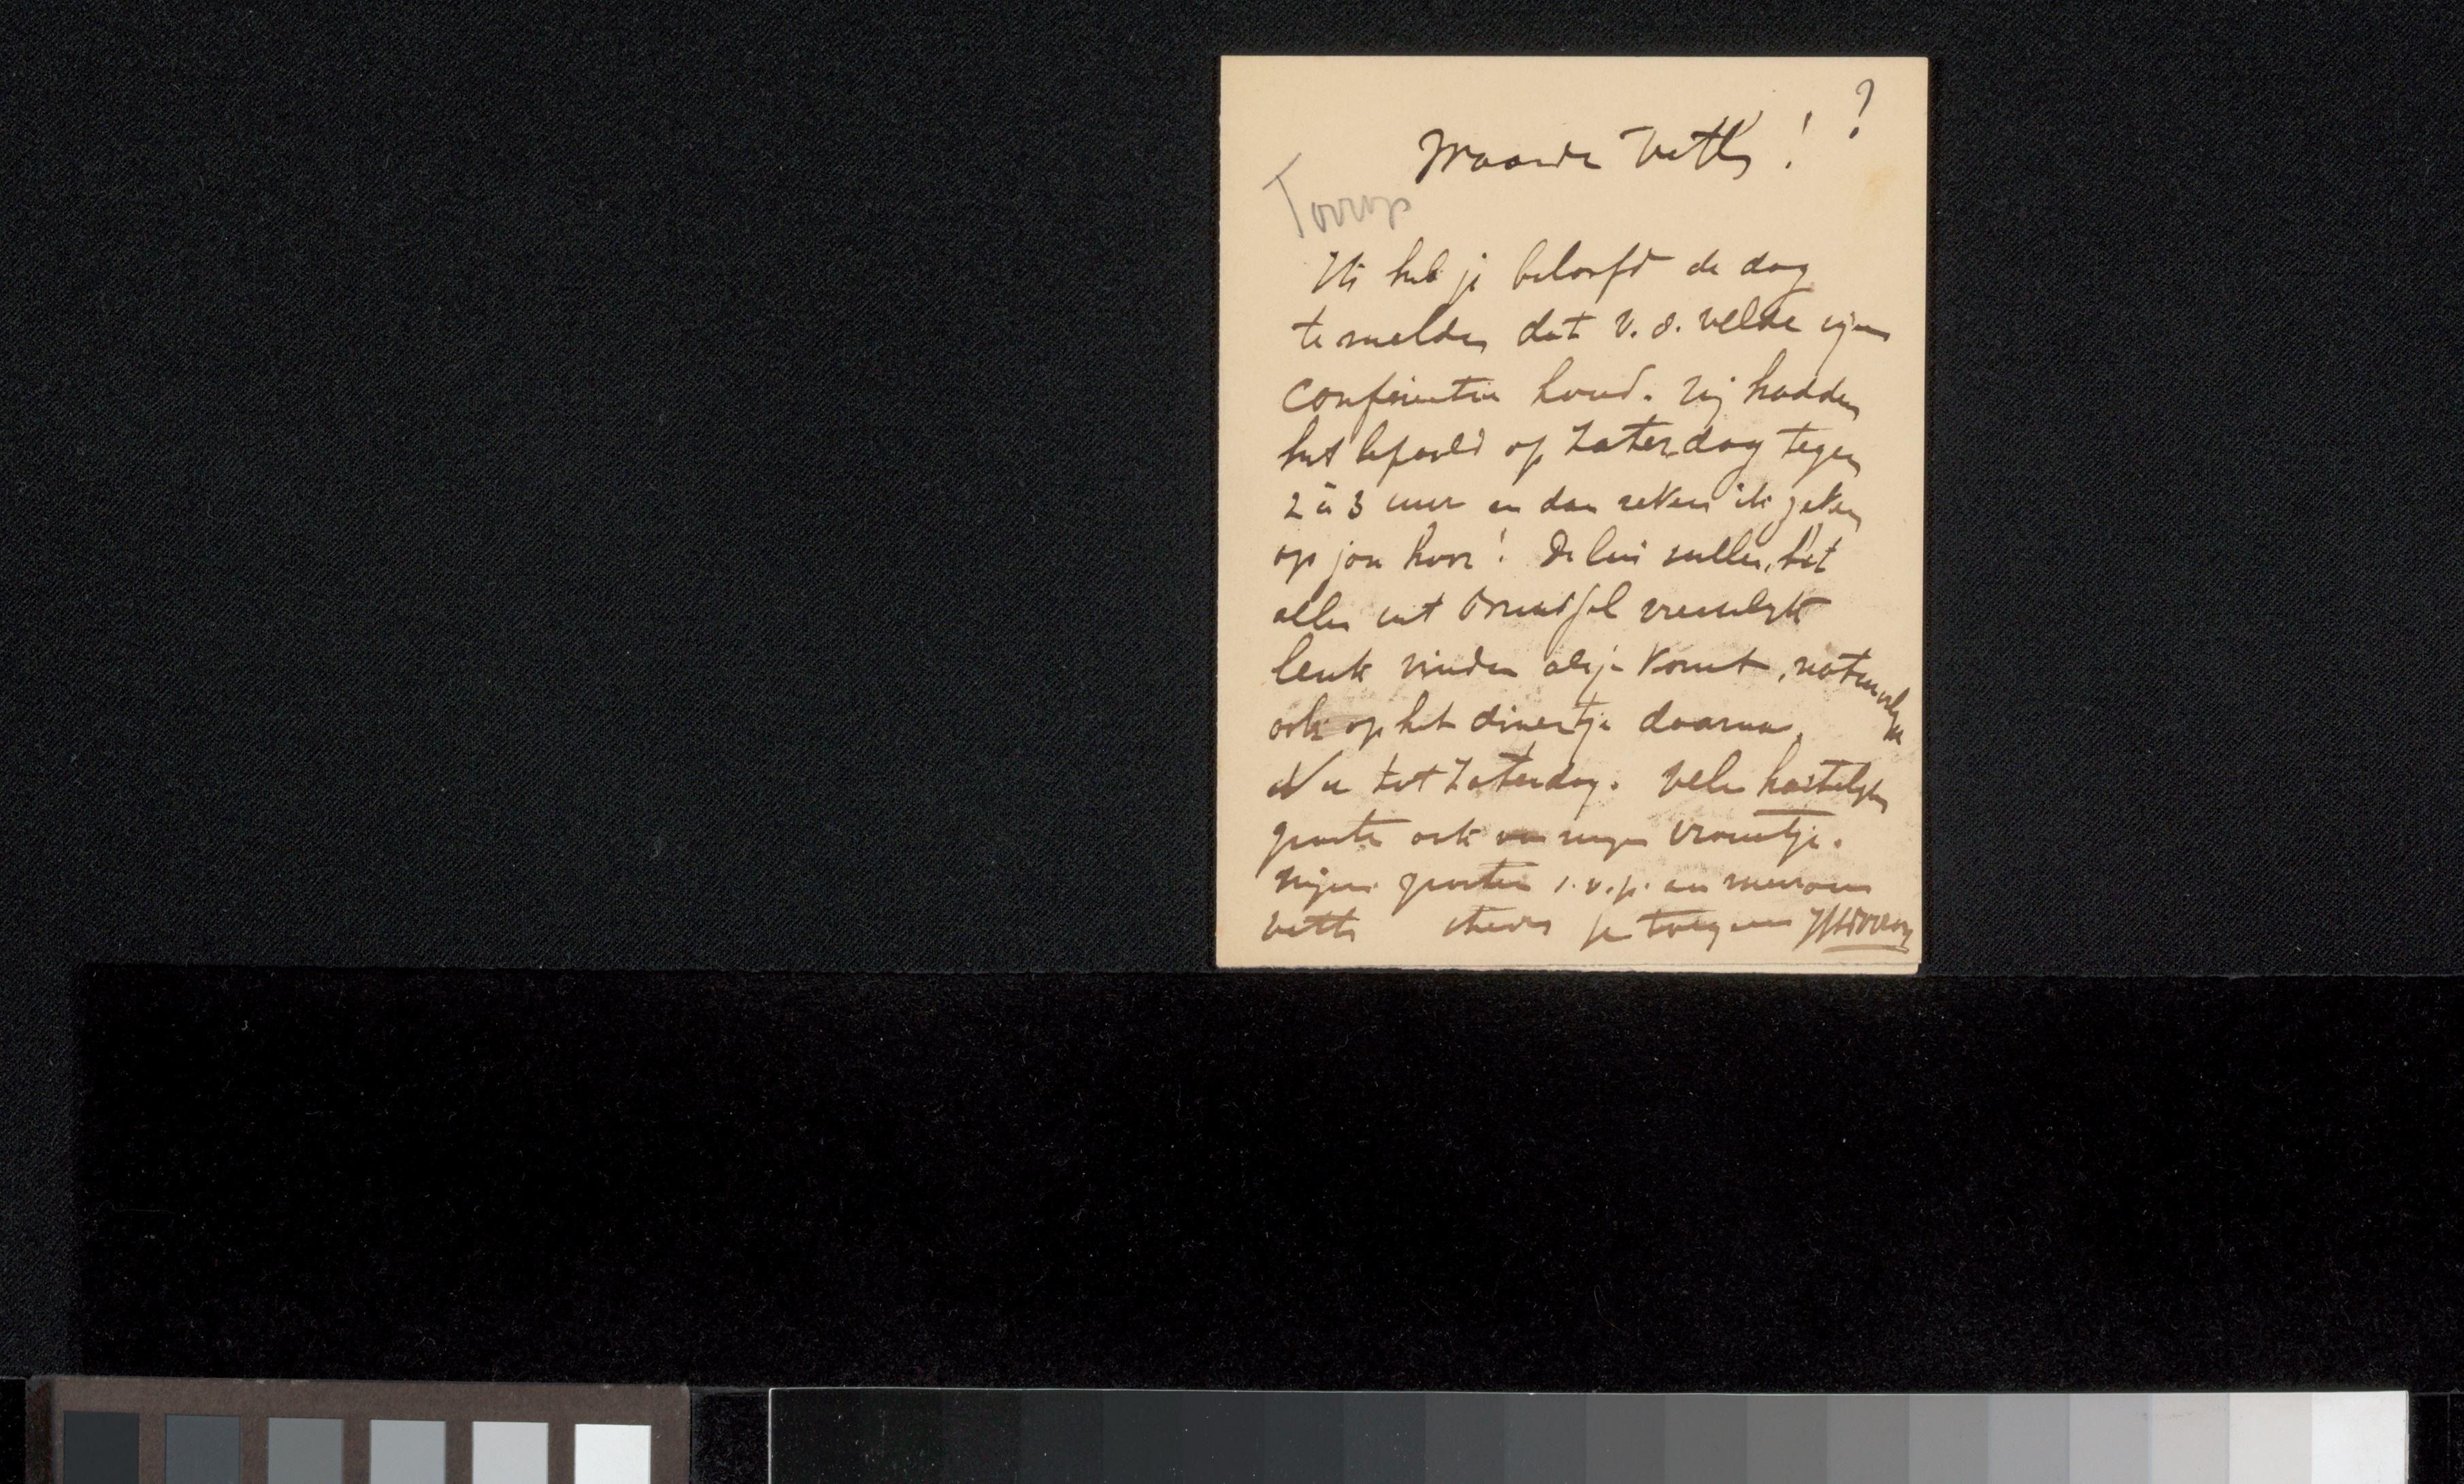 ?
Waarde Veth!
Toorop
Ik heb je beloofd de dag
te melden dat V. d. Velde zijn
Conferentie houd. Wij hadden
het bepaald op Zaterdag tegen
2 à 3 uur en dan reken ik zeker
op jou hoor! De lui zullen het
allen uit Brussel vreeselijk
leuk vinden als je komt, natuurlijk
ook op het dinertje daarna.
Nu tot Zaterdag. Vele hartelijke
groete ook van mijn vrouwtje.
Mijne groeten s.v.p. aan mevrouw
Veth steeds je toegenen JThToorop